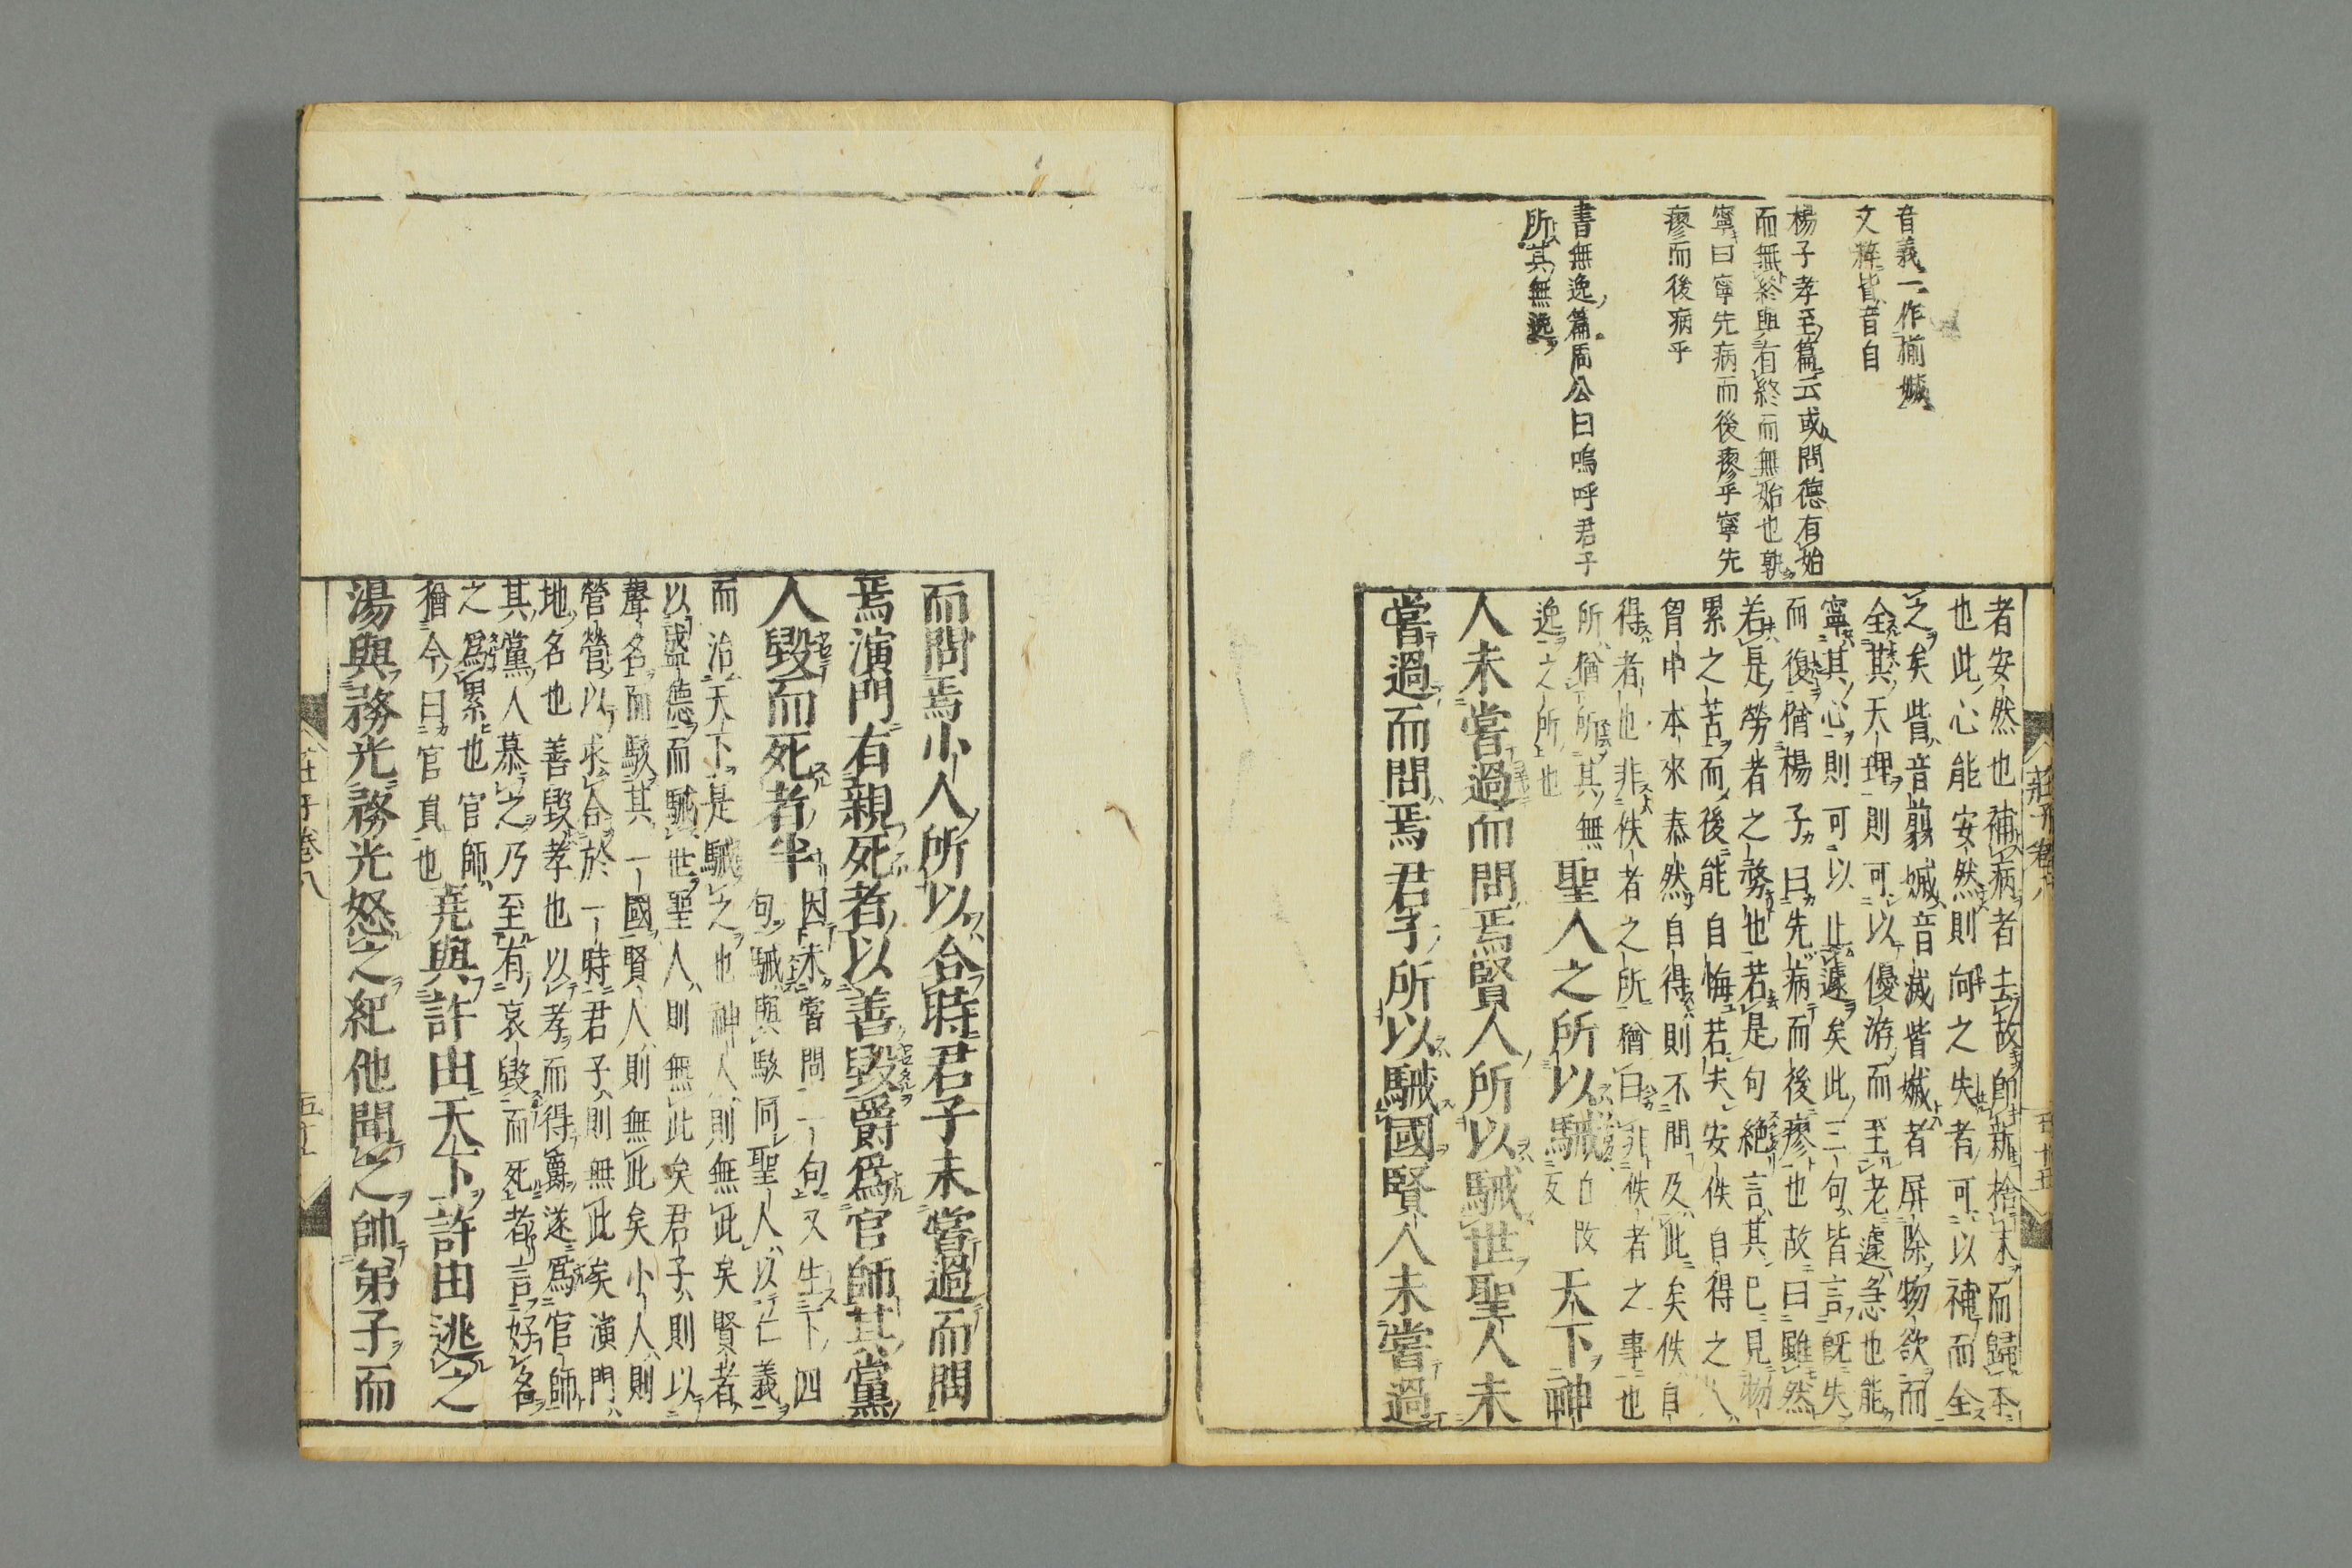 音義一作揃 㓕
文粹皆音自
楊子孝至篇云或問德有始
而無終與有終而無始也孰
寧曰寧先病而後瘳乎寧先
瘳而後病乎
書無逸篇周公曰嗚呼君子
所其無逸
者安然也補病者去故卽新捨末而歸本
也此心能安然則向之失者可以補而全
之矣眥音翦㓕音滅眥㓕者屏除物欲而
全其天理則可以優游而至老遽急也能
寧其心則可以止遽矣此三句皆言既失
而復猶楊子曰先病而後瘳也故曰雖然
若是勞者之務也若是句絶言其已見物
累之苦而後能自悔若夫安佚自得之人
胷中本來泰然自得則不問及此矣佚自
得者也非佚者之所猶曰非佚者之事也
所猶所其無
逸之所也
聖人之所以駴天下神
人未嘗過而問焉賢人所以駴世聖人未
嘗過而問焉君子所以駴國賢人未嘗過
莊子卷八
而問焉小人所以合時君子未嘗過而問
焉演門有親死者以善毀爵爲官師其黨
人毀而死者半
因未嘗問一句又生下四
句駴與駭同聖人以仁義
而治天下是駴之也神人則無此矣賢者
以盛德而駴世聖人則無此矣君子則以
聲名而駭其一國賢人則無此矣小人則
營營以求合於一時君子則無此矣演門
地名也善毀孝也以孝而得爵遂爲官師
其黨人慕之乃至有哀毀而死者言好名
之爲累也官師
猶今曰官員也
堯與許由天下許由逃之
湯與務光務光怒之紀他聞之帥弟子而
莊子卷八